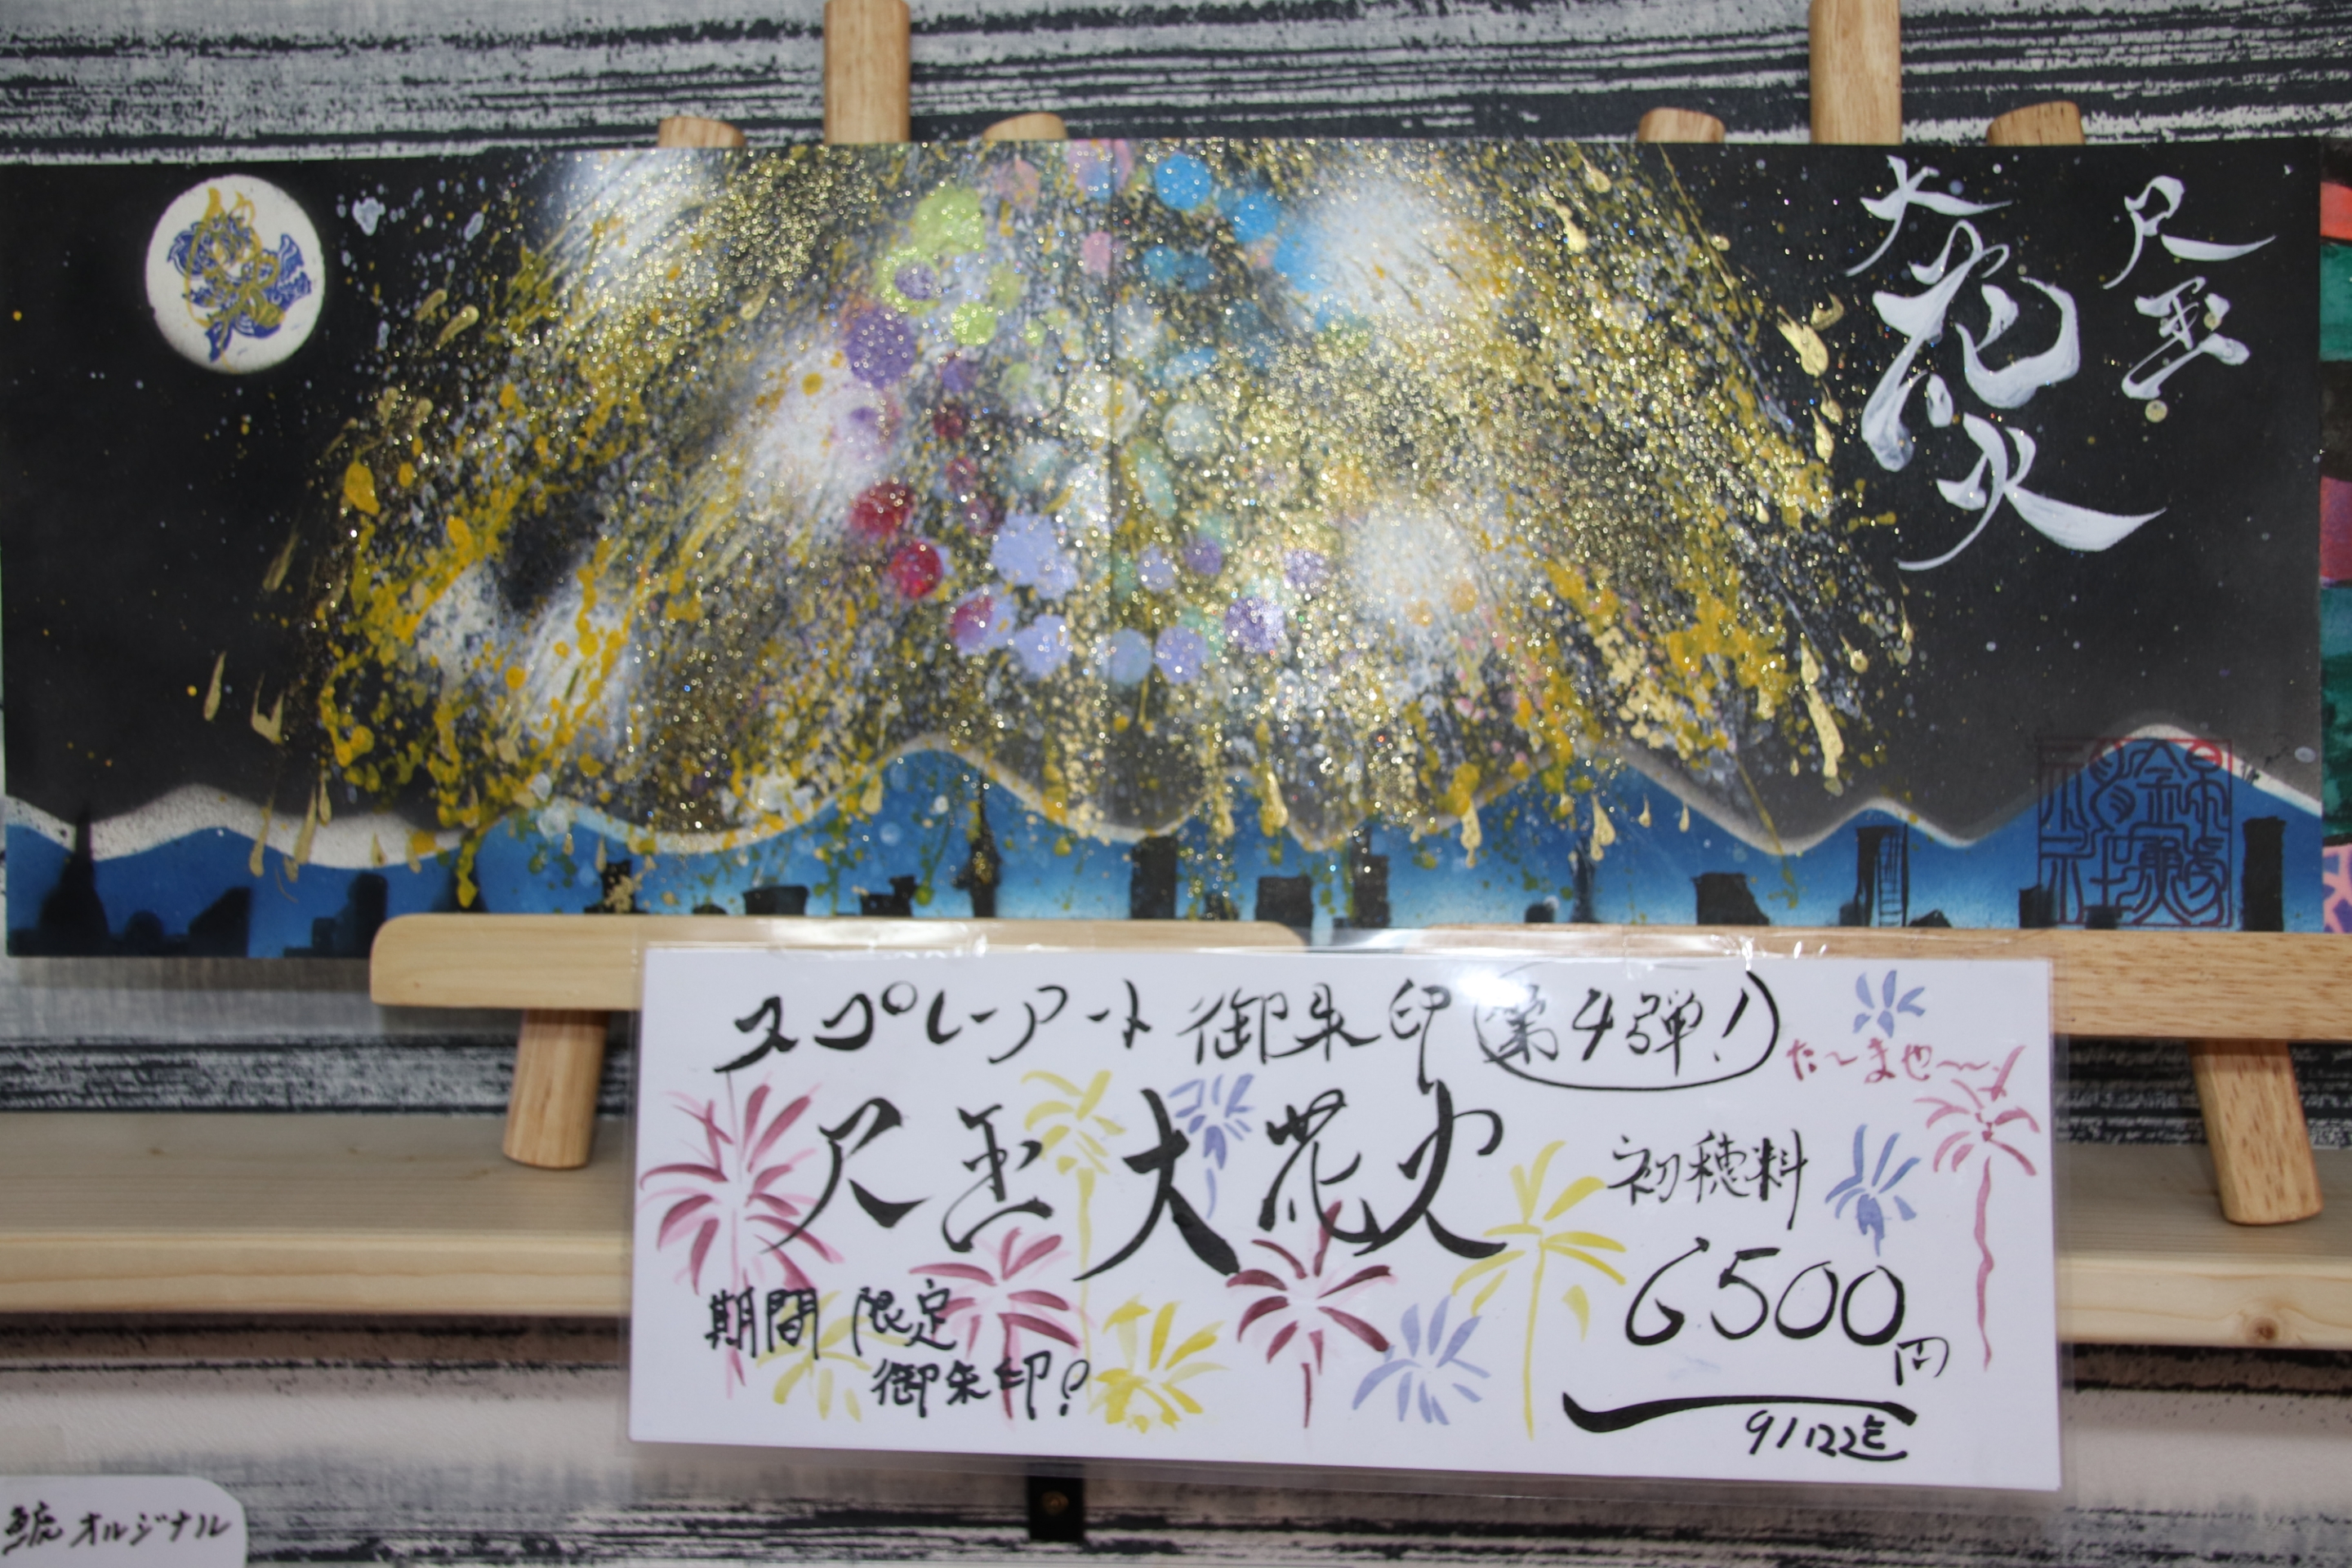 尺玉
大花火
スプレーアート御朱印 第4弾!
た〜まや〜
尺玉大花火
初穂料
6500円
期間限定
御朱印
9/22迄
オルジナル